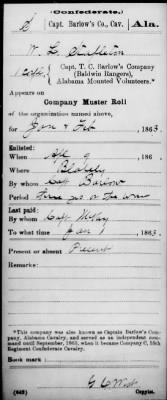 (Confederate.)
S Capt. Barlow's Co., Cav. Ala.
W. L. Singleton
Capt. T. C. Barlow's Company
(Baldwin Rangers),
Alabama Mounted Volunteers.*
Appears on
Company Muster Roll
of the organization named above,
for Jan & Feb, 1863.
Enlisted:
When 9, 186
Where Blakely
By whom Capt Barlow
Period or the war
Last paid:
By whom Capt
To what time Jan 1, 1863.
Present or absent Present
Remarks:
*This company was also known as Captain Barlow's Com-
pany, Alabama Cavalry, and served as an independent com-
mand until September, 1863, when it became Company C, 15th
Regiment Confederate Cavalry.
Book mark:
(642) Copyist.